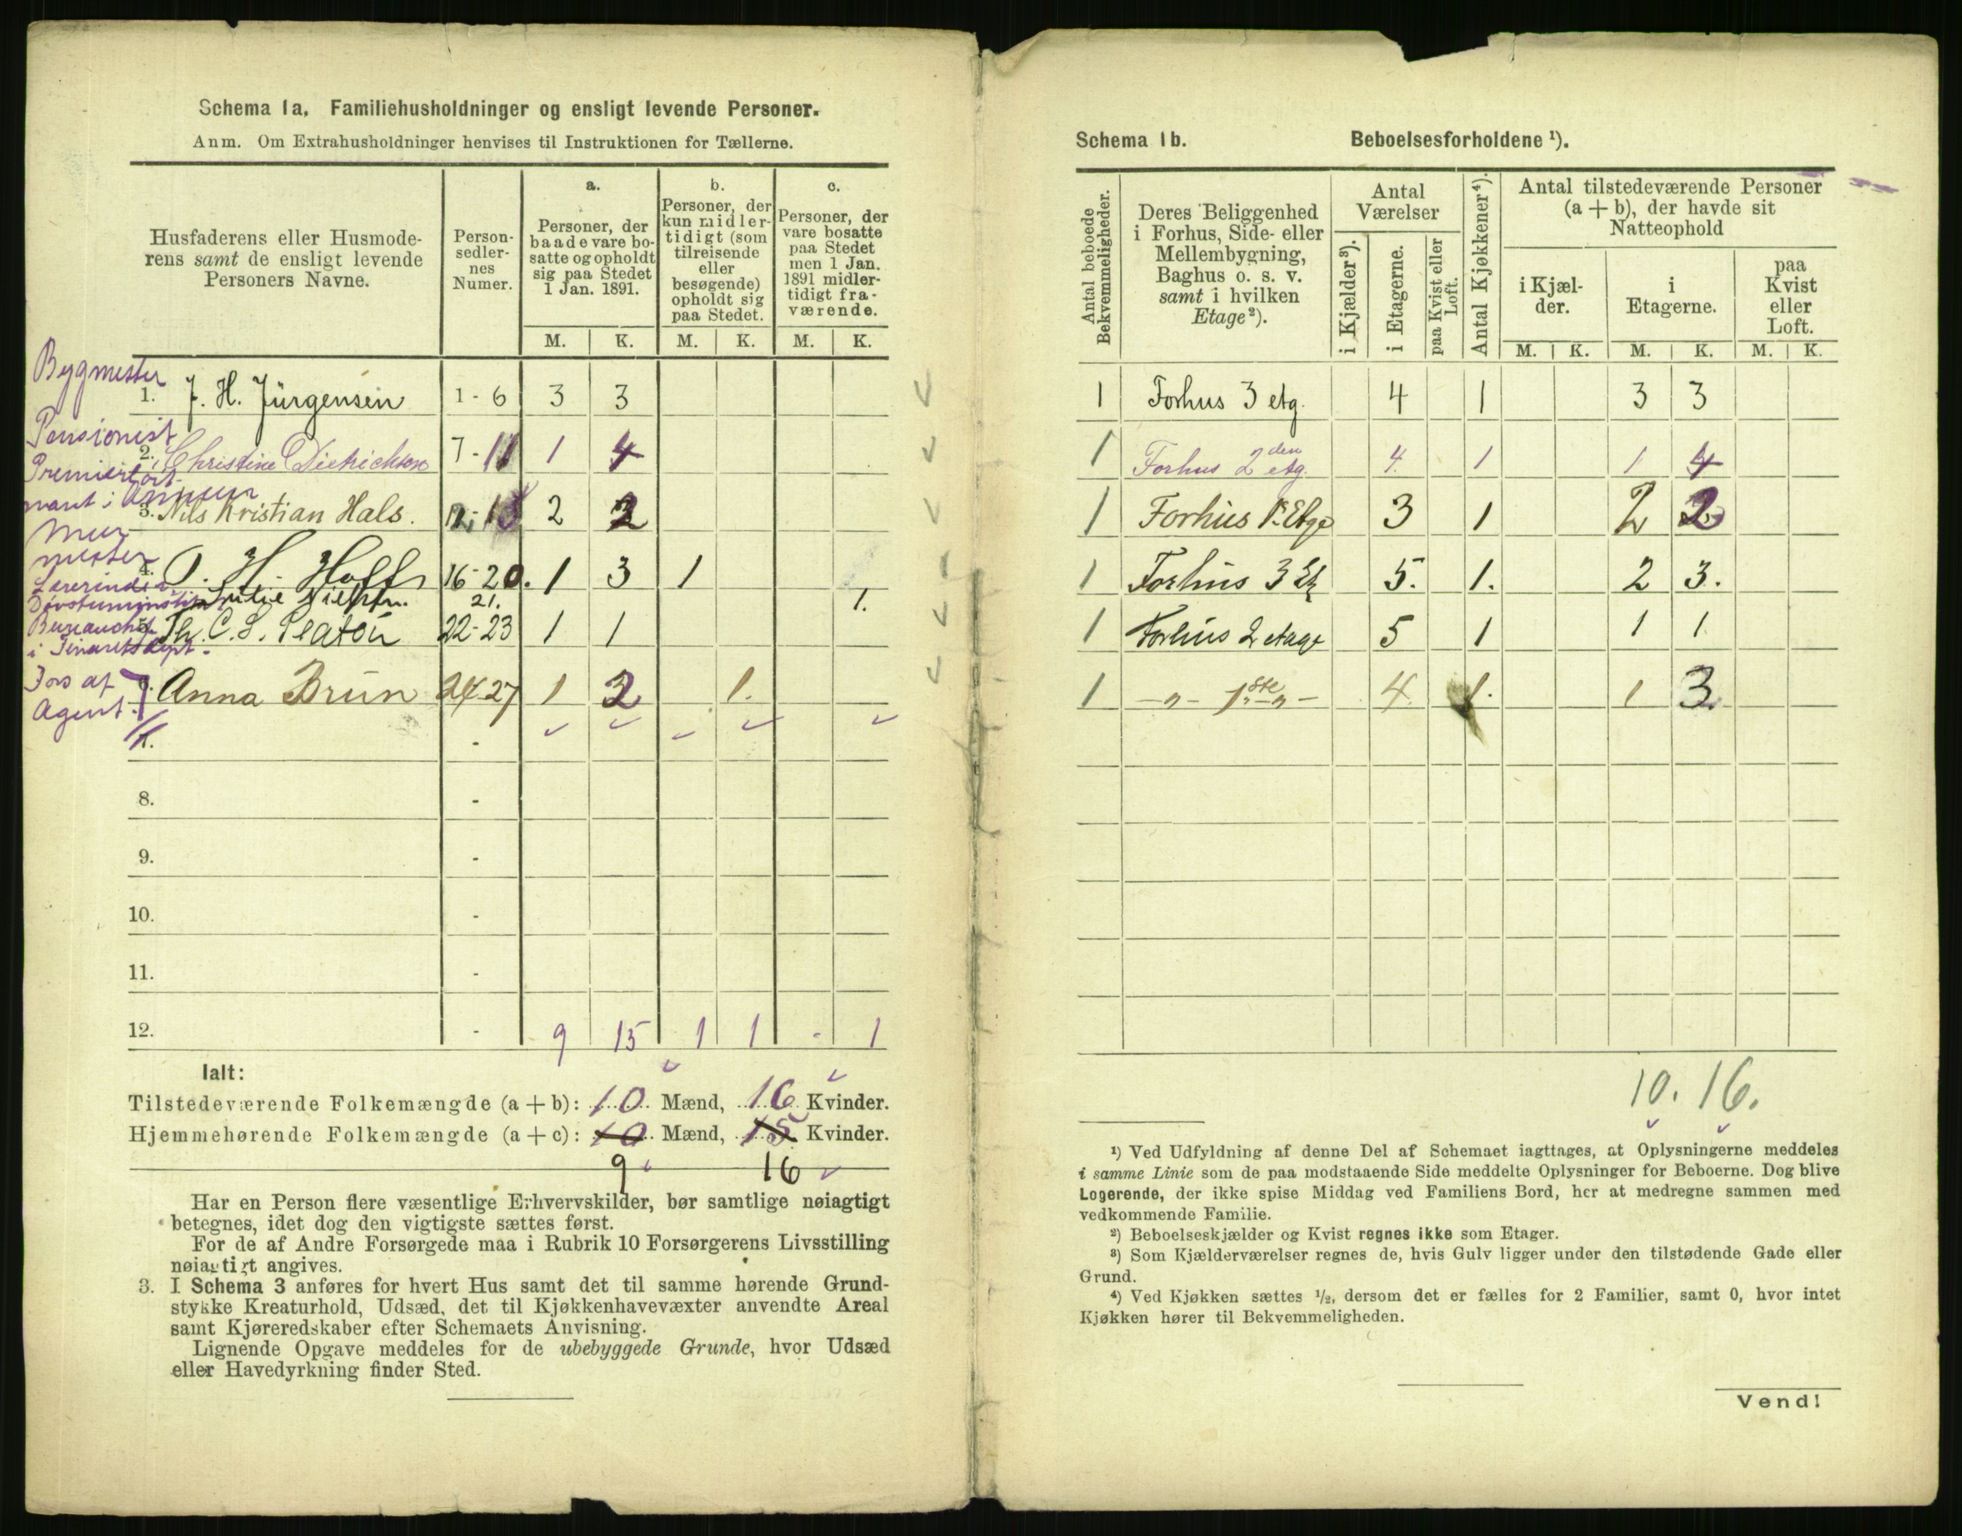 Schema 1a. Familiehusholdninger og ensligt levende Personer.
Anm. Om Extrahusholdninger henvises til Instruktionen for Tællerne.
Husfaderens eller Husmoderens samt de ensligt levende Personers Navne.
Personsedlernes Numer.
a. Personer, der baade vare bosatte og opholdt sig paa Stedet 1 Jan. 1891.
b. Personer, der kun midlertidigt (som tilreisende eller besøgende) opholdt sig paa Stedet.
c. Personer, der vare bosatte paa Stedet men 1 Jan. 1891 midlertidigt fraværende.
M. K. M. K. M. K.
Bygmester
1. J. H. Jürgensen 1-6 3 3
Pensionist
2. Christine Dietrichson 7-11 1 4
3. Nils Kristian Hals. 12-15 2 2
Murmester
4. O. H. Holt 16-20. 1 3 1
Lærerinde i
21. 1.
Bureauchef
5. Th. C. S. Platou 22-23 1 1
6. Anna Brun 24-27 1 2 1.
Agent.
7. -
8. -
9. -
10. -
11. -
12. - 9 15 1 1 - 1
Ialt:
Tilstedeværende Folkemængde (a + b): 10 Mænd, 16 Kvinder.
Hjemmehørende Folkemængde (a + c): 10 Mænd, 15 Kvinder.
9 16
Har en Person flere væsentlige Erhvervskilder, bør samtlige nøiagtigt
betegnes, idet dog den vigtigste sættes først.
For de af Andre Forsørgede maa i Rubrik 10 Forsørgerens Livsstilling
nøiagtigt angives.
3. I Schema 3 anføres for hvert Hus samt det til samme hørende Grund-
stykke Kreaturhold, Udsæd, det til Kjøkkenhavevæxter anvendte Areal
samt Kjøreredskaber efter Schemaets Anvisning.
Lignende Opgave meddeles for de ubebyggede Grunde, hvor Udsæd
eller Havedyrkning finder Sted.
Schema 1b. Beboelsesforholdene ¹).
Antal beboede Bekvemmeligheder.
Deres Beliggenhed i Forhus, Side- eller Mellembygning, Baghus o. s. v. samt i hvilken Etage ²).
Antal Værelser
i Kjælder ³).
i Etagerne.
paa Kvist eller Loft.
Antal Kjøkkener ⁴).
Antal tilstedeværende Personer (a + b), der havde sit Natteophold
i Kjælder.
i Etagerne.
paa Kvist eller Loft.
M. K. M. K. M. K.
1 Forhus 3 etg. 4 1 3 3
1 Forhus 2den etg. 4. 1 1 4
1 Forhus 1. Etge 3 1 2 2
1 Forhus 3 Et. 5. 1. 2 3.
1 Forhus 2 etage 5 1 1 1
1 —„— 1ste —„— 4. 1. 1 3.
10. 16.
¹) Ved Udfyldning af denne Del af Schemaet iagttages, at Oplysningerne meddeles
i samme Linie som de paa modstaaende Side meddelte Oplysninger for Beboerne. Dog blive
Logerende, der ikke spise Middag ved Familiens Bord, her at medregne sammen med
vedkommende Familie.
²) Beboelseskjælder og Kvist regnes ikke som Etager.
³) Som Kjælderværelser regnes de, hvis Gulv ligger under den tilstødende Gade eller
Grund.
⁴) Ved Kjøkken sættes ½, dersom det er fælles for 2 Familier, samt 0, hvor intet
Kjøkken hører til Bekvemmeligheden.
Vend!